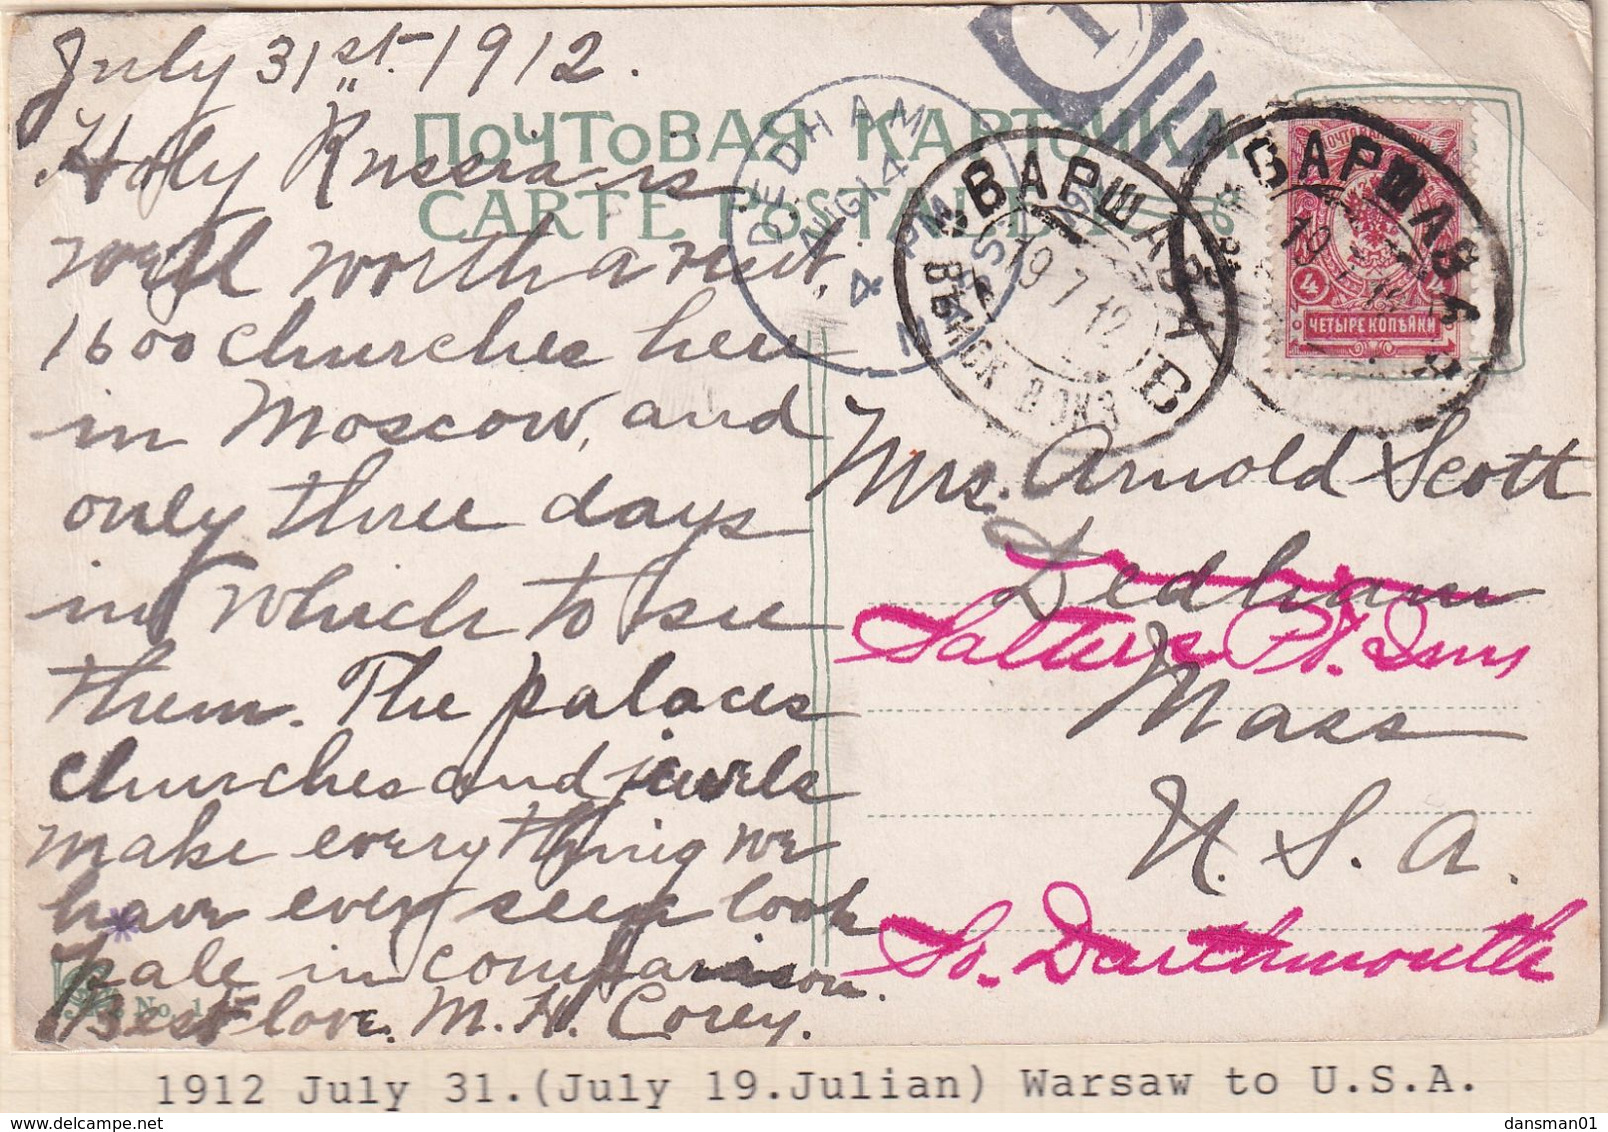 July 31st. 1912.
Holy Russia is
well worth a visit,
1600 churches here
in Moscow, and
only three days
in which to see
them. The palaces
churches and jewels
make everything we
have ever seen look
pale in comparison.
Best love. M. H. Corey.
ПОЧТОВАЯ КАРТОЧКА
CARTE POSTALE
DEDHAM
AUG 14
4 PM
MASS
1
ВАРШАВА
19 7 12
В
ВАРШАВА
19
ПОЧТОВАЯ
4
4
ЧЕТЫРЕ КОПѢЙКИ
Mrs. Arnold Scott
Dedham
Salters Pt. Inn
Mass
U. S. A.
So. Dartmouth
No. 1
1912 July 31.(July 19.Julian) Warsaw to U.S.A.
dansman01